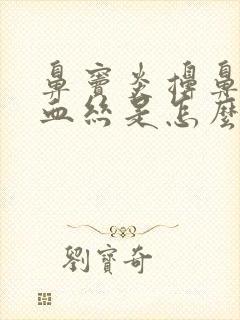 鼻竇炎擤鼻
血絲是怎麼
劉寶奇